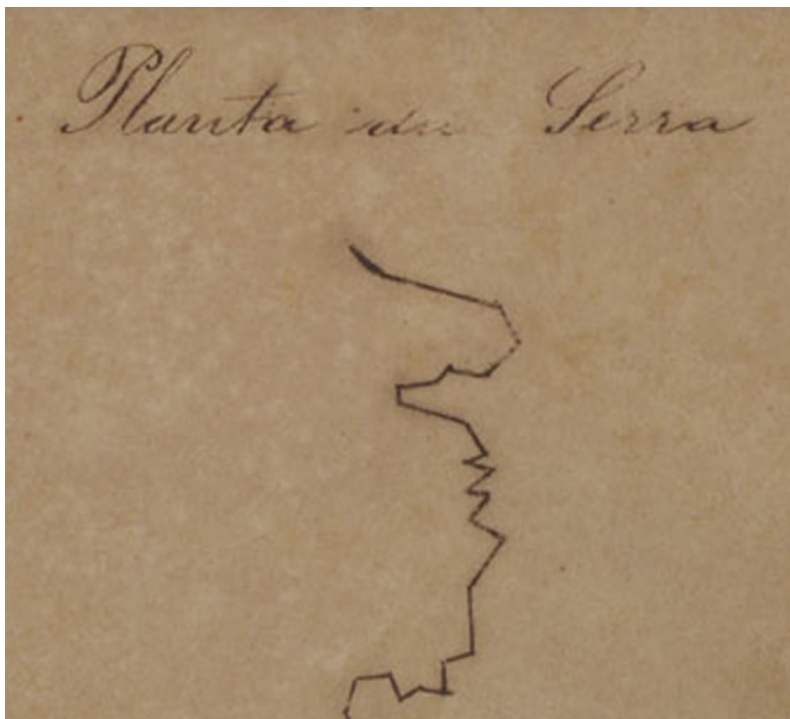 Planta da Serra